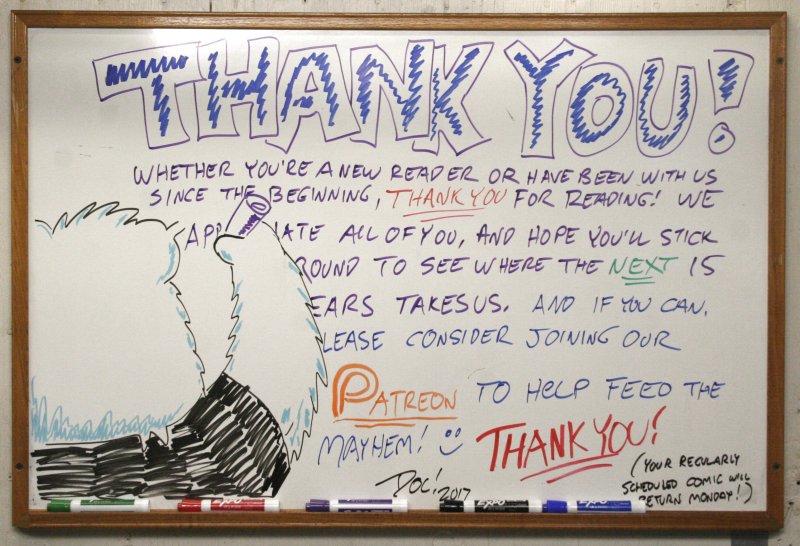 THANK YOU!
WHETHER YOU'RE A NEW READER OR HAVE BEEN WITH US
SINCE THE BEGINNING, THANK YOU FOR READING! WE
APP IATE ALL OF YOU, AND HOPE YOU'LL STICK
ROUND TO SEE WHERE THE NEXT 15
EARS TAKES US. AND IF YOU CAN,
LEASE CONSIDER JOINING OUR
PATREON TO HELP FEED THE
MAYHEM! :) THANK YOU!
DOC! 2017
(YOUR REGULARLY
SCHEDULED COMIC WILL
RETURN MONDAY!)
EXPO